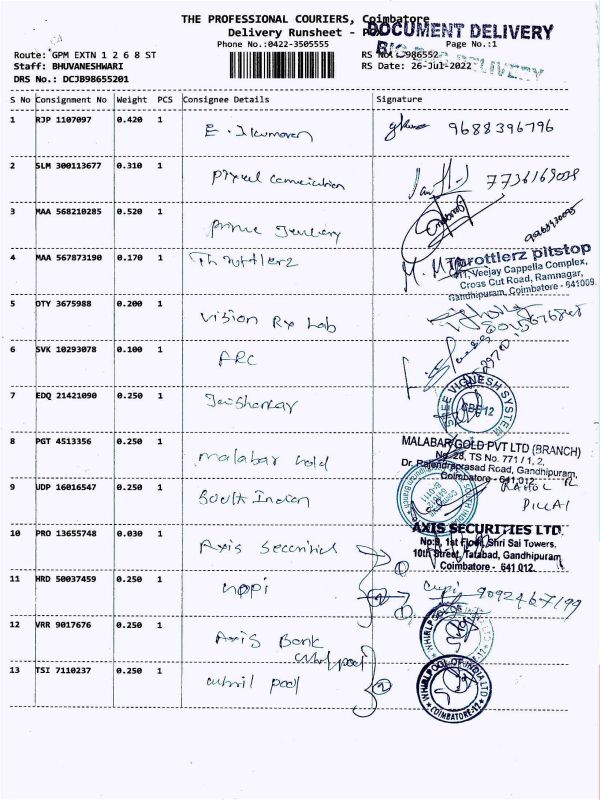 THE PROFESSIONAL COURIERS, Coimbatore
DOCUMENT DELIVERY
Delivery Runsheet - POD
Phone No.:0422-3505555
Page No.:1
Route: GPM EXTN 1 2 6 8 ST
Staff: BHUVANESHWARI
RS Date: 26-Jul-2022
DELIVERY
DRS No.: DCJB98655201
S No Consignment No Weight PCS Consignee Details Signature
1 RJP 1107097 0.420 1
9688396796
2 SLM 300113677 0.310 1
3 MAA 568210285 0.520 1 prince Jewellery
4 MAA 567873190 0.170 1 Throttlerz
Throttlerz pitstop
Veejay Cappella Complex,
Cross Cut Road, Ramnagar,
Gandhipuram, Coimbatore - 641009.
5 OTY 3675988 0.200 1 Vision Rx Lab
6 SVK 10293078 0.100 1 ARC
7 EDQ 21421090 0.250 1 Jaishankar
SHREE VIGNESH SYSTEM
CBE-12
8 PGT 4513356 0.250 1 malabar Gold
MALABAR GOLD PVT LTD (BRANCH)
No. 28, TS No. 771 / 1, 2,
Dr. Rajendraprasad Road, Gandhipuram,
Coimbatore - 641 012.
9 UDP 16016547 0.250 1 South Indian
RAHUL R
PILLAI
10 PRO 13655748 0.030 1 Axis Securities
AXIS SECURITIES LTD.
No:9, 1st Floor, Shri Sai Towers,
10th Street, Tatabad, Gandhipuram,
Coimbatore - 641 012.
11 HRD 50037459 0.250 1
9092467199
12 VRR 9017676 0.250 1 Axis Bank
13 TSI 7110237 0.250 1
2
WHIRLPOOL OF INDIA LTD
COIMBATORE-12